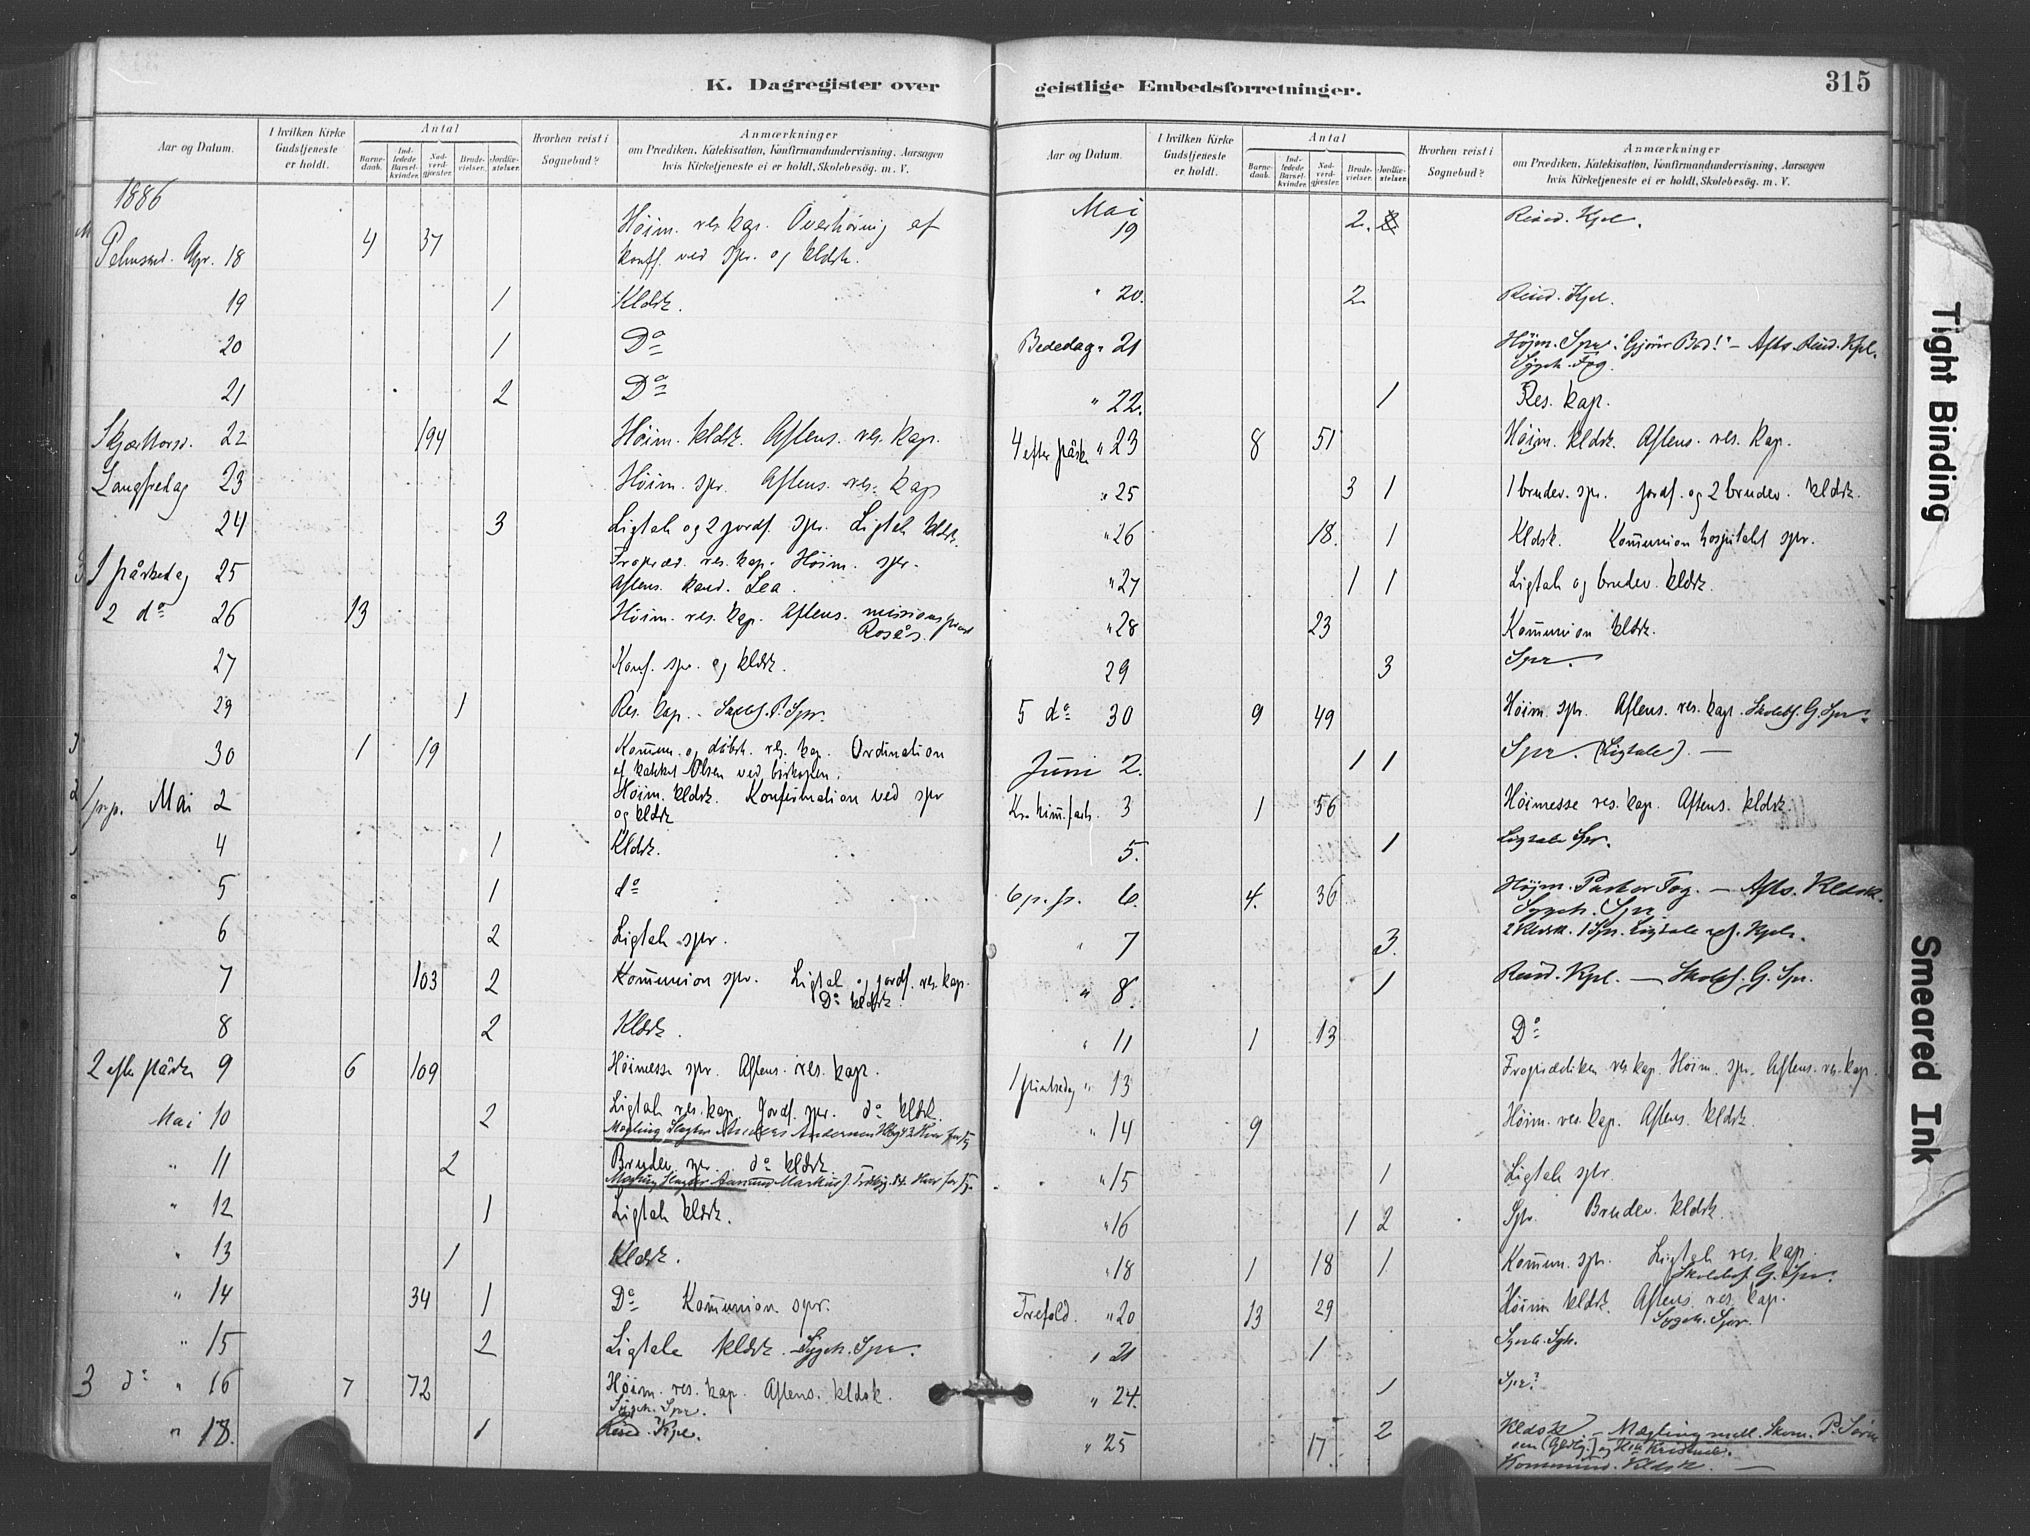 K. Dagregister over
geistlige Embedsforretninger.
315
Aar og Datum.
I hvilken Kirke Gudstjeneste er holdt.
Antal
Barnedaab.
Indledede Barselkvinder.
Nadverdgjæster.
Brudevielser.
Jordfæstelser.
Hvorhen reist i Sognebud?
Anmærkninger
om Prædiken, Katekisation, Konfirmandundervisning, Aarsagen
hvis Kirketjeneste ei er holdt, Skolebesøg. m. V.
1886
Palmesønd. Apr. 18 4 37 Høim. res. kap. Overhøring af
konff. ved spr. og kldsk.
19 1 Kldsk.
20 1 Do
21 2 Do
Skjærtorsd. 22 194 Høim. kldsk. Aftens. res. kap.
Langfredag 23 Høim. spr. Aftens. res. kap
24 3 Ligtale og 2 jordf. spr. Ligtale kldsk.
1 påskedag 25 Fropræd. res. kap. Høim. spr.
Aftens. kand. Lea.
2 do 26 13 Høim. res. kap. Aftens. missionsprest
Rosås.
27 Konf. spr. og kldsk.
29 1 Res. kap. Skolbs. P. Spr.
30 1 19 Kommun. og dåbsh. res. kap. Ordination
af Olsen ved biskopen.
1 p. p. Mai 2 Høim. kldsk. Konfirmation ved spr
og kldsk
4 1 Kldsk.
5 1 do
6 2 Ligtale spr.
7 103 2 Kommunion spr. Ligtal og jordf. res. kap.
Do kldsk.
8 2 Kldsk.
2 efter påske 9 6 109 Høimesse spr. Aftens. res. kap.
Mai 10 2 Ligtale res. kap. Jordf. spr. do kldsk.
Mægling
" 11 2 Brudev. spr. do kldsk
Mægling
" 12 1 Ligtale kldsk.
" 13 1 Kldsk.
" 14 34 1 Do Kommunion spr.
" 15 2 Ligtale kldsk. Sygeh. Spr.
3 do " 16 7 72 Høim. res. kap. Aftens. kldsk.
Sygeh. Spr.
" 18. 1 Resid. Kpl.
Aar og Datum.
I hvilken Kirke Gudstjeneste er holdt.
Antal
Barnedaab.
Indledede Barselkvinder.
Nadverdgjæster.
Brudevielser.
Jordfæstelser.
Hvorhen reist i Sognebud?
Anmærkninger
om Prædiken, Katekisation, Konfirmandundervisning, Aarsagen
hvis Kirketjeneste ei er holdt, Skolebesøg. m. V.
Mai
19 2. Resid. Kpl.
" 20. 2 Resid. Kpl.
Bededag " 21 Højm. Spr. "Gjører Bod!" – Afts. Resid. Kpl.
Sygeh. Fog.
" 22. 1 Res. kap.
4 efter påske " 23 8 51 Høim. kldsk. Aftens. res. kap.
" 25 3 1 1 brudev. spr. jordf. og 2 brudev. kldsk.
" 26 18. 1 Kldsk. Kommunion hospitalet spr.
" 27 1 1 Ligtale og brudev. kldsk.
" 28 23 Kommunion kldsk.
29 3 Spr.
5 do 30 9 49 Høim. spr. Aftens. res. kap. Skolebs. G. Spr.
Juni 2. 1 1 Spr. (Ligtale). —
Kr. himmelfartsd. 3 1 56 Høimesse res. kap. Aftens. kldsk.
5. 1 Ligtale Spr.
6 p. p. 6. 4. 36 Højm. Pastor Fog. — Afts. Kldsk.
Sygeh. Spr.
" 7 3. 2 Kldsk. 1 Spr. Ligtale res. Kpl.
" 8. 1 Resid. Kpl. — Skolebs. G. Spr.
" 11 1 13 Do
1 pintsedag " 13 Froprædiken res. kap. Høim. spr. Aftens. res. kap.
" 14 9 Høim. res. kap. Aftens. kldsk.
" 15 1 Ligtale spr.
" 16 1 2 Spr. Brudev. kldsk.
" 18 1 18 1 Kommun. spr. Ligtale res. kap.
Skolebs. G. Spr.
Trefold. " 20 13 29 Høim. kldsk. Aftens. res. kap.
Sygeh. Spr.
" 21 1
" 24. 1 Spr.
" 25 17 2 Kldsk. — Mægling mell.
Kommun. Kldsk. —
Tight Binding
Smeared Ink